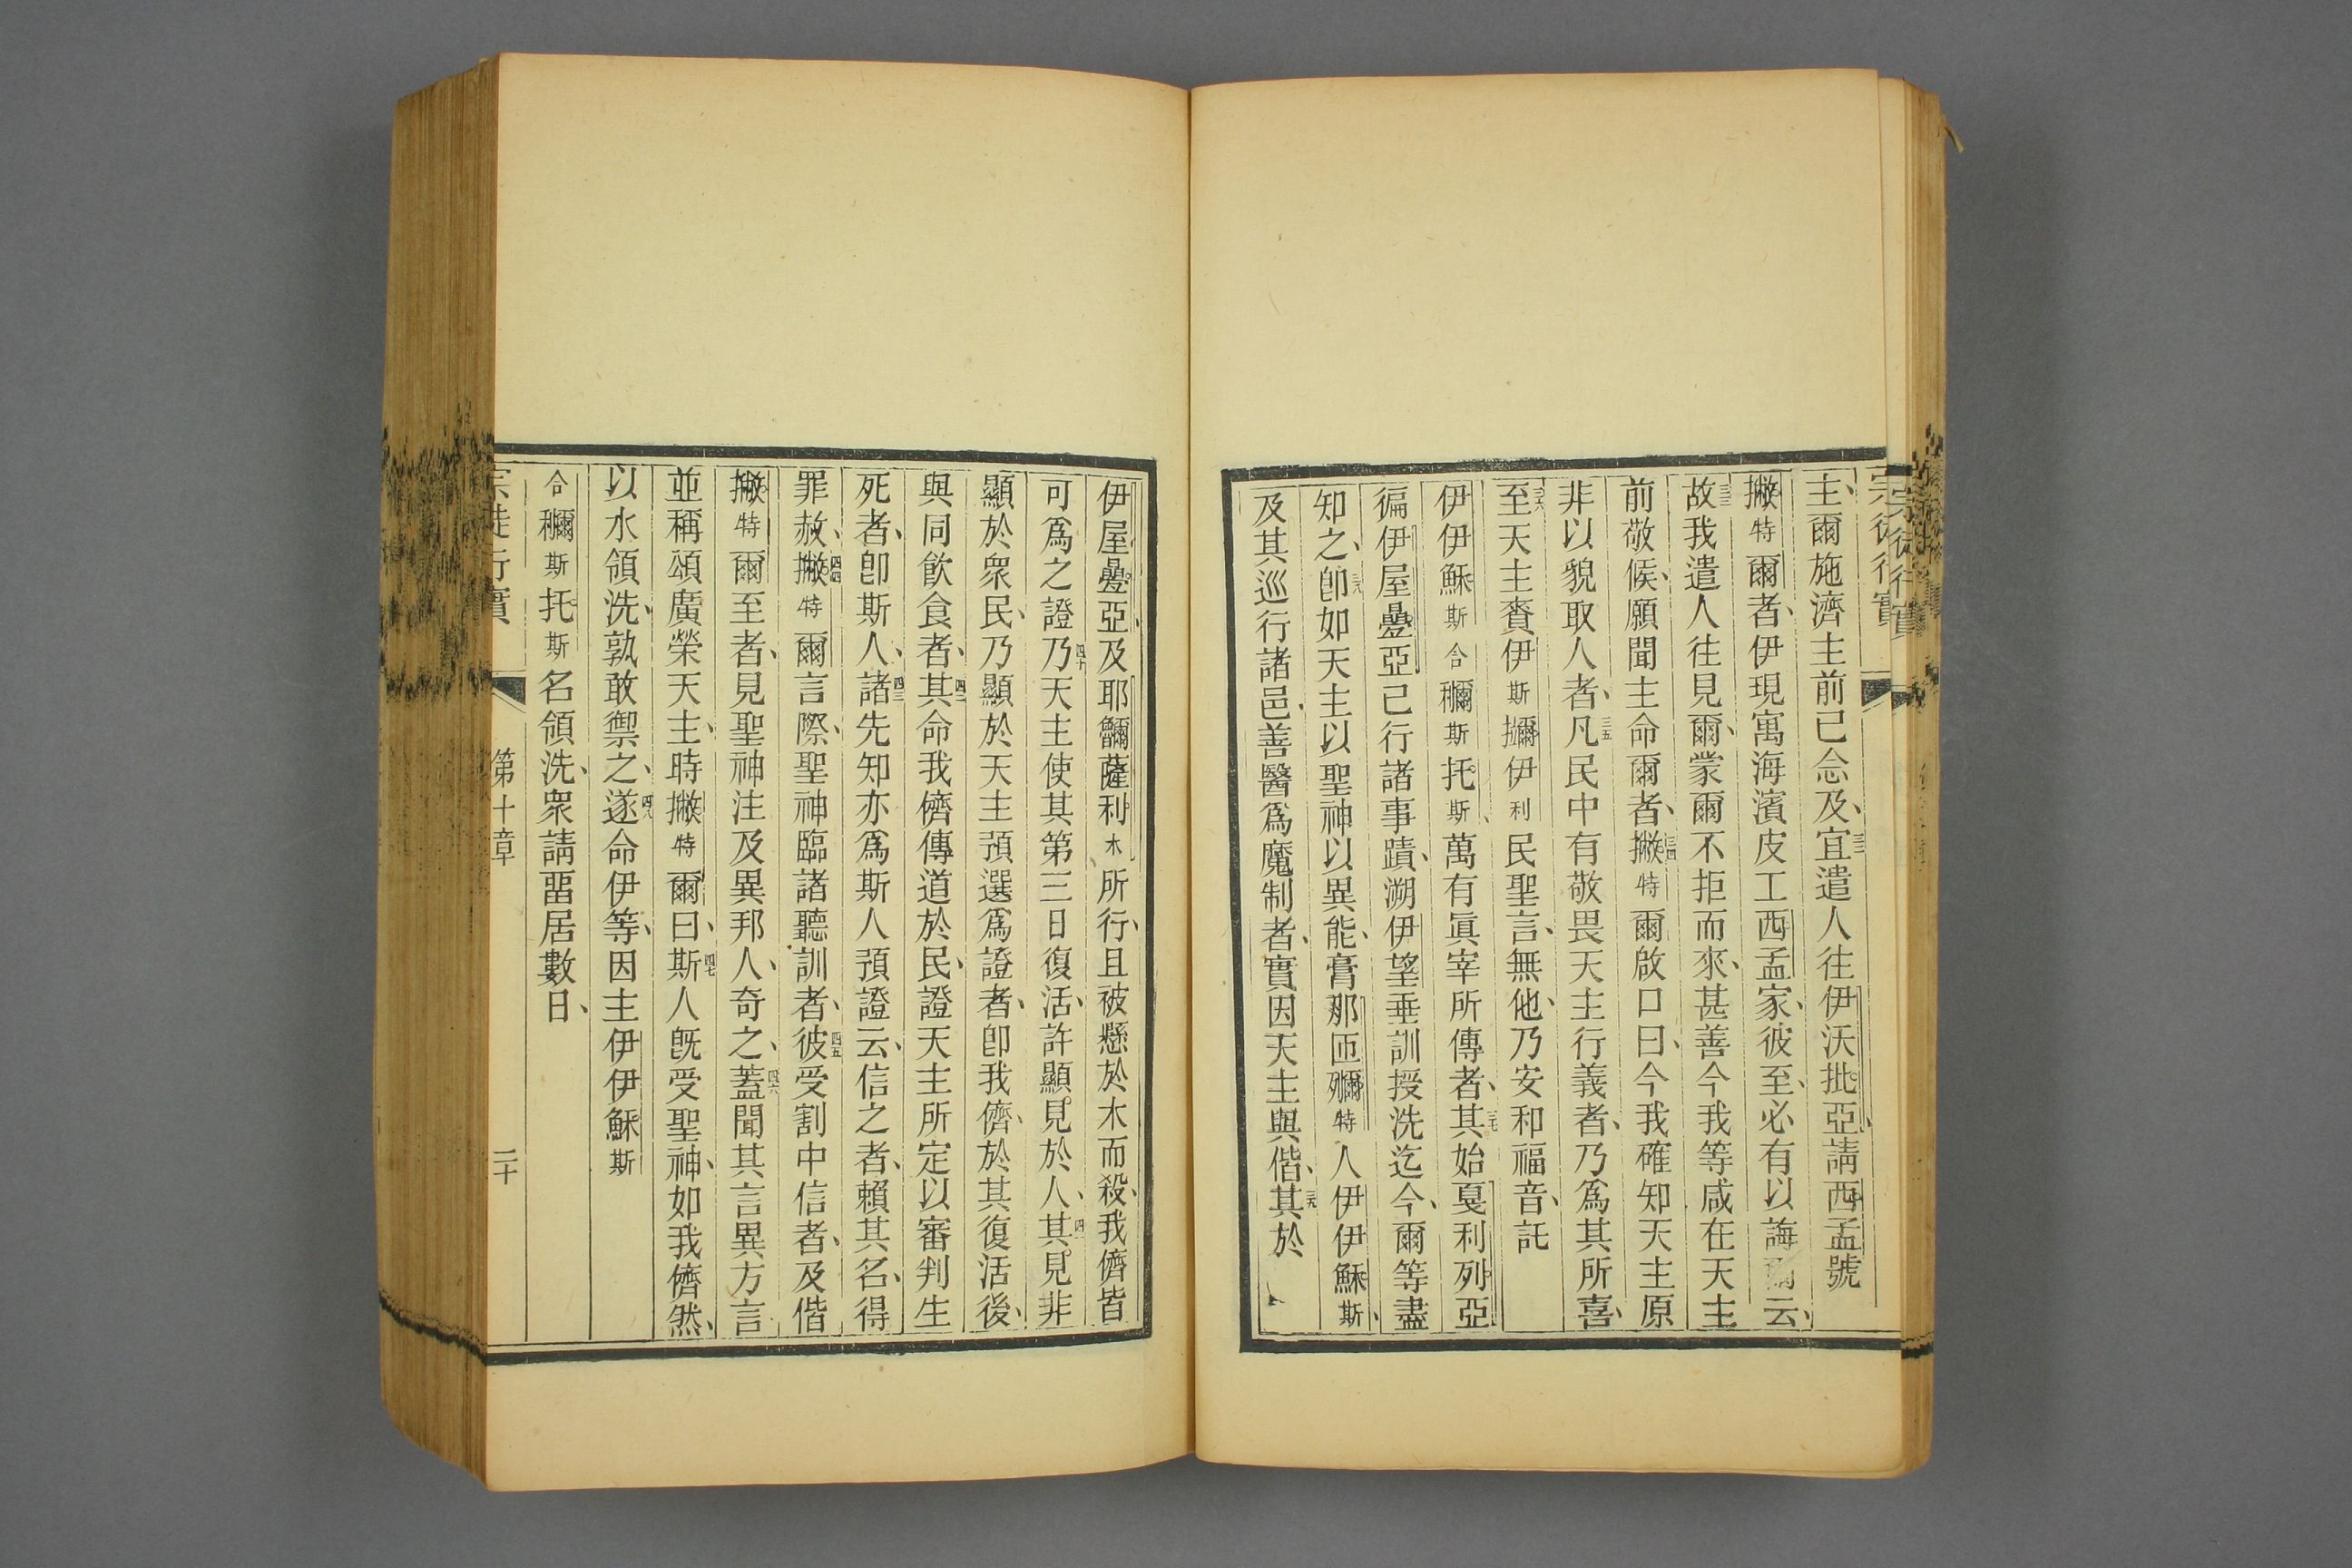 宗徒行實
主、爾施濟主前已念及、三二宜遣人往伊沃批亞、請西孟號
撇特爾者、伊現寓海濱皮工西孟家、彼至、必有以誨爾云、
三三故我遣人往見爾、蒙爾不拒而來、甚善今我等咸在天主
前敬候、願聞主命爾者、三四撇特爾啟口曰、今我確知天主原
非以貌取人者、三五凡民中有敬畏天主行義者、乃爲其所喜、
三六至天主賚伊斯伊利民聖言、無他、乃安和福音、託
伊伊穌斯合斯托斯、萬有眞宰所傳者、三七其始戛利列亞
徧伊屋疊亞已行諸事蹟、溯伊望垂訓授洗迄今、爾等盡
知之、三八卽如天主以聖神以異能、膏那匝特人伊伊穌斯、
及其巡行諸邑善醫爲魔制者、實因天主與偕、三九其於
伊屋疊亞、及耶薩利木所行、且被懸於木而殺、我儕皆
可爲之證、四十乃天主使其第三日復活、許顯見於人、四一其見非
顯於衆民、乃顯於天主預選爲證者、卽我儕、於其復活後、
與同飲食者、四二其命我儕傳道於民、證天主所定以審判生
死者、卽斯人、四三諸先知亦爲斯人預證云、信之者、賴其名、得
罪赦、四四撇特爾言際、聖神臨諸聽訓者、四五彼受割中信者、及偕
撇特爾至者、見聖神注及異邦人、奇之、四六蓋聞其言異方言
並稱頌廣榮天主、時撇特爾曰、四七斯人旣受聖神、如我儕然、
以水領洗、孰敢禦之、四八遂命伊等、因主伊伊穌斯
合斯托斯名領洗、衆請畱居數日、
宗徒行實 第十章 二十